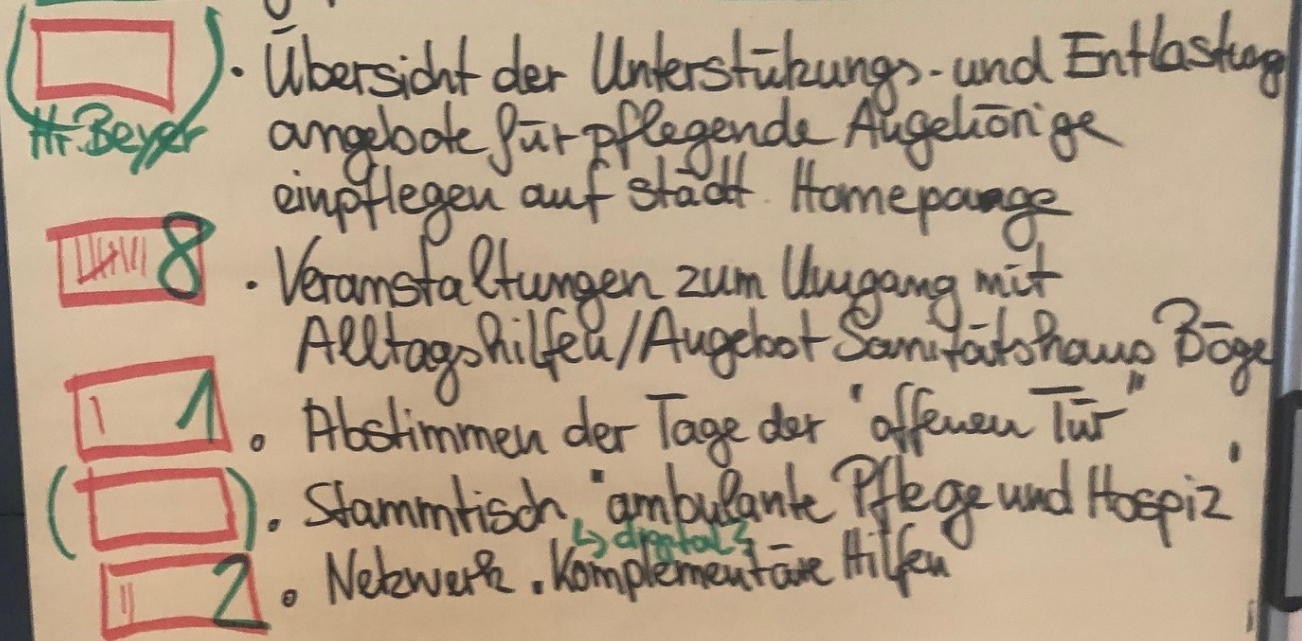 · Übersicht der Unterstützungs- und Entlastung
Hr. Beyer angebote für pflegende Angehörige
einpflegen auf städt. Homepage
8 · Veranstaltungen zum Umgang mit
Alltagshilfen/Angebot Sanitätshaus Böge
1 . Abstimmen der Tage der "offenen Tür"
( ) . Stammtisch "ambulante Pflege und Hospiz"
↳ digital?
2 . Netzwerk . Komplementäre Hilfen